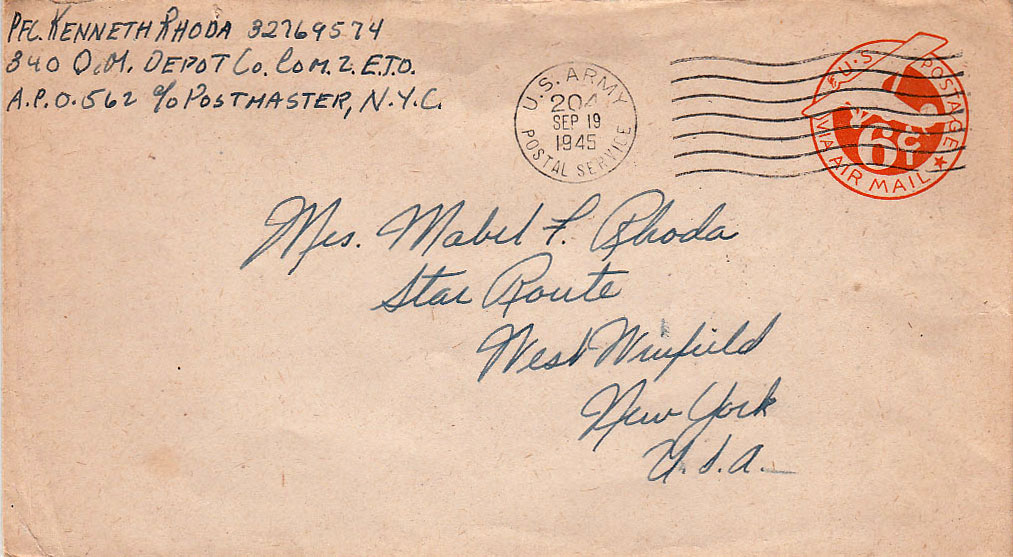 PFC. KENNETH RHODA 32769574
340 Q.M. DEPOT CO. COM. Z. E.T.O.
A.P.O. 562 c/o POSTMASTER, N.Y.C.
U.S. ARMY
204
SEP 19
1945
POSTAL SERVICE
U.S. POSTAGE
6¢
VIA AIR MAIL
Mrs. Mabel F. Rhoda
Star Route
West Winfield
New York
U.S.A.